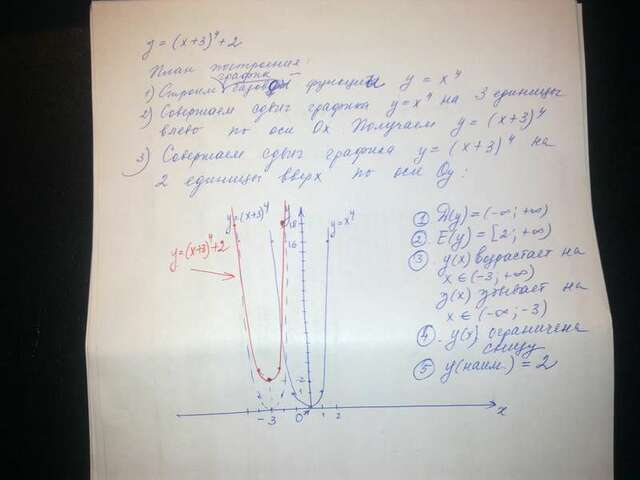 y = (x+3)⁴ + 2
План построения:
графика
1) Строим базовой функции y = x⁴
2) Совершаем сдвиг графика y = x⁴ на 3 единицы
влево по оси Ox Получаем y = (x+3)⁴
3) Совершаем сдвиг графика y = (x+3)⁴ на
2 единицы вверх по оси Oy:
y=(x+3)⁴
y
18
16
y=x⁴
y=(x+3)⁴+2
2
-3
0
1
2
x
① D(y) = (-∞; +∞)
②. E(y) = [2; +∞)
③. y(x) возрастает на
x ∈ (-3; +∞)
y(x) убывает на
x ∈ (-∞; -3)
④. y(x) ограничена
снизу
⑤ y(наим.) = 2